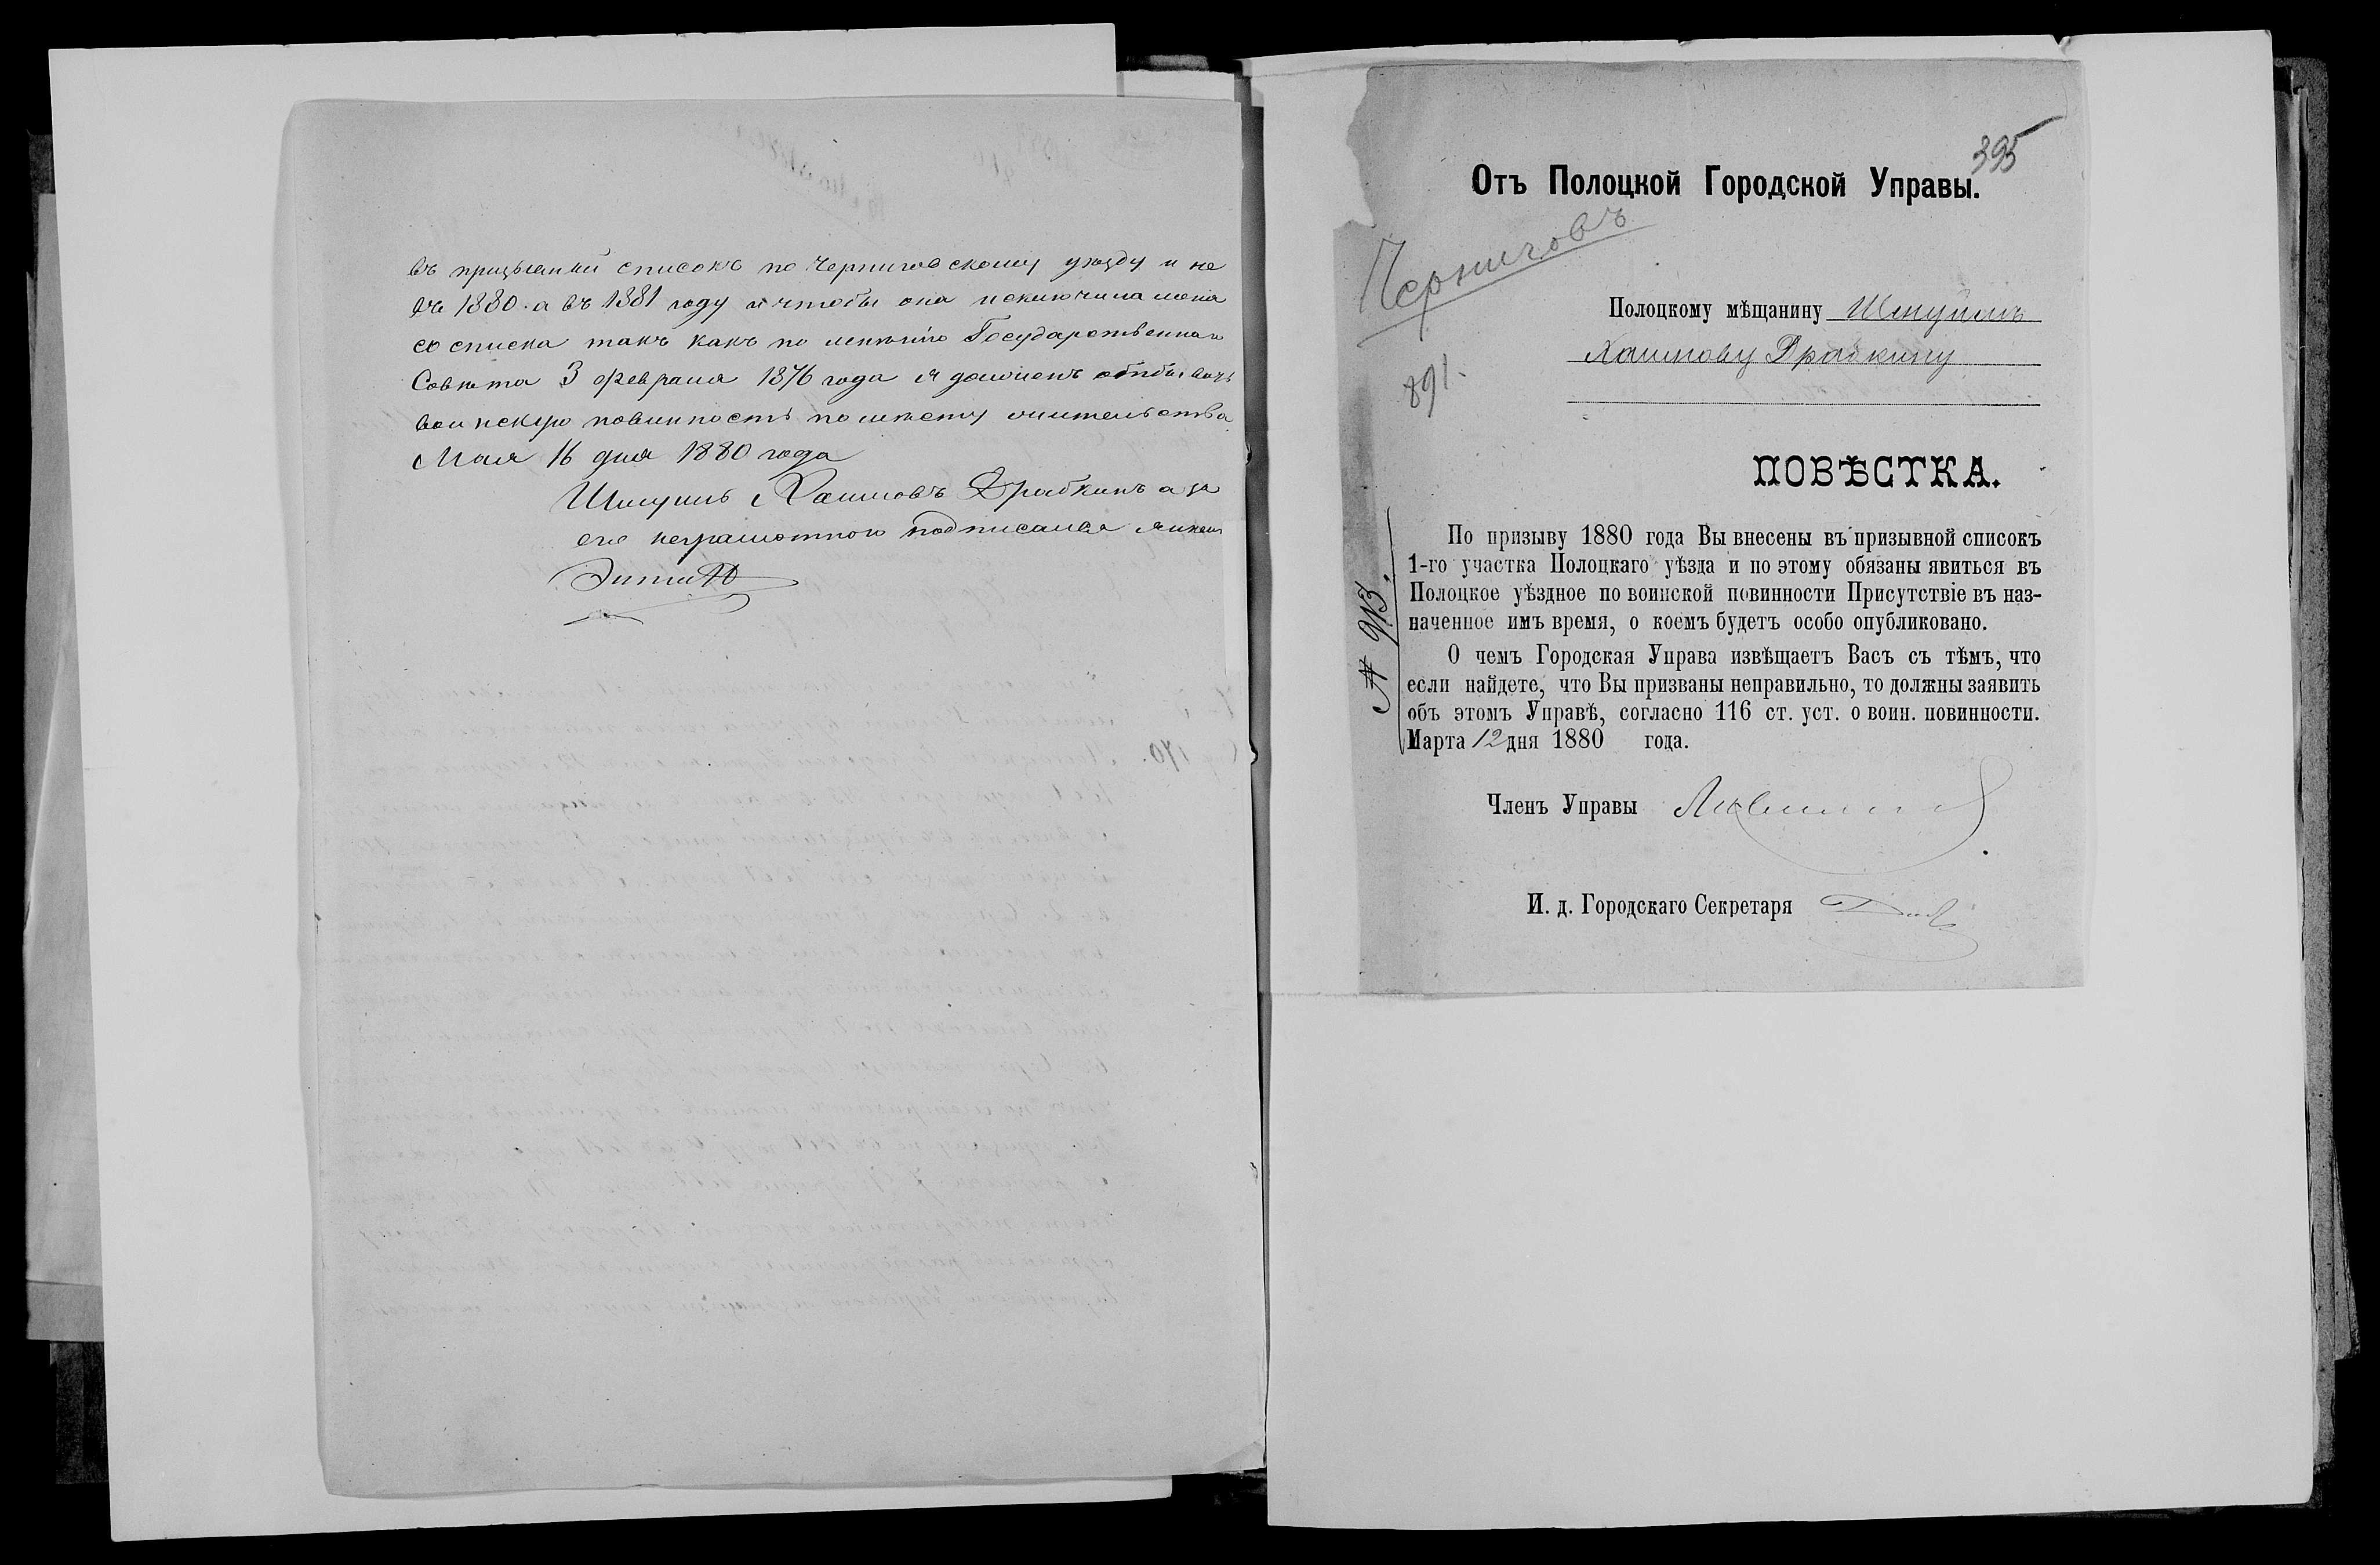 въ призывный списокъ по Черниговскому уѣзду и не
въ 1880. а въ 1881 году и чтобы она исключила меня
со списка такъ какъ по мнѣнію Государственнаго
Совѣта 3 февраля 1876 года я долженъ отбывать
воинскую повинность по мѣсту жительства
Мая 16 дня 1880 года
Шмуиль Хаимовъ Драбкинъ а за
его неграмотного подписался
395
Отъ Полоцкой Городской Управы.
Черниговъ
Полоцкому мѣщанину Шмуилъ
Хаимову Драбкину
891.
ПОВѢСТКА.
№ 913.
По призыву 1880 года Вы внесены въ призывной списокъ
1-го участка Полоцкаго уѣзда и по этому обязаны явиться въ
Полоцкое уѣздное по воинской повинности Присутствіе въ наз-
наченное имъ время, о коемъ будетъ особо опубликовано.
О чемъ Городская Управа извѣщаетъ Васъ съ тѣмъ, что
если найдете, что Вы призваны неправильно, то должны заявить
объ этомъ Управѣ, согласно 116 ст. уст. о воин. повинности.
Марта 12 дня 1880 года.
Членъ Управы
И. д. Городскаго Секретаря